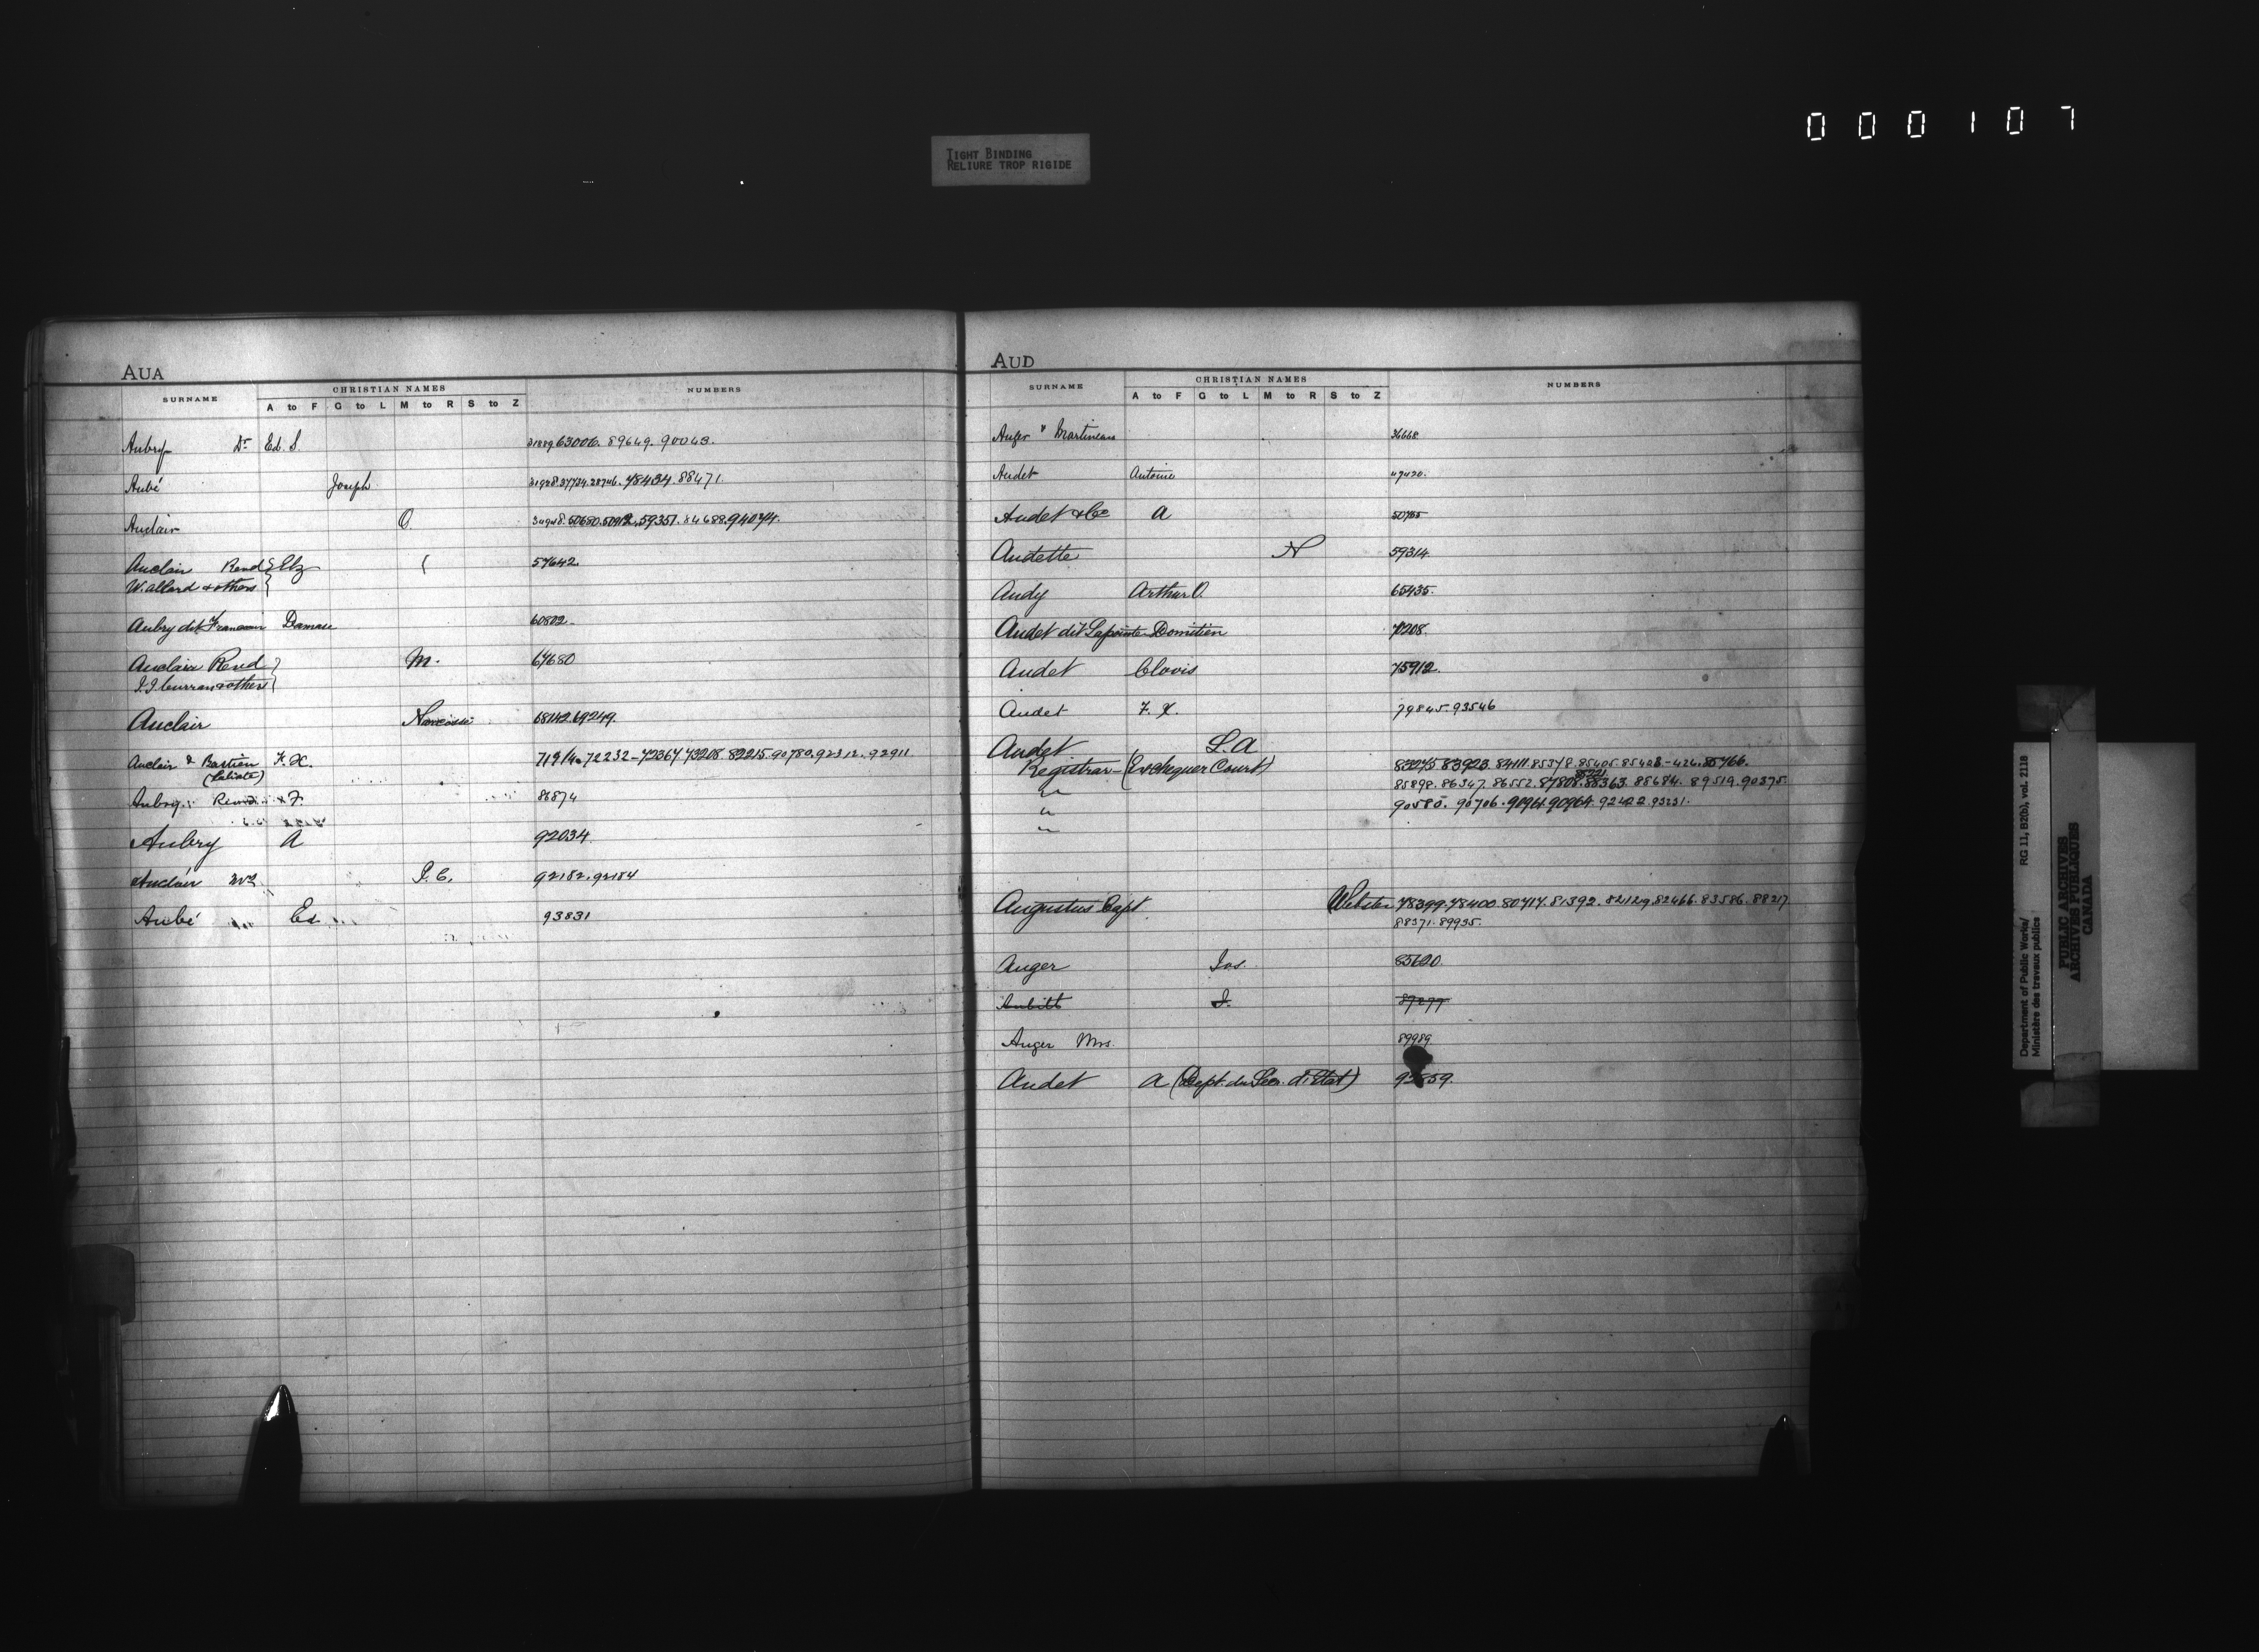 000107
TIGHT BINDING
RELIURE TROP RIGIDE
AUA
SURNAME CHRISTIAN NAMES NUMBERS
A to F G to L M to R S to Z
Aubry Dr Ed. S. 63006. 89649. 90043.
Aubé Joseph 48434. 88471.
Auclair O. 59351. 84688. 94074.
Auclair Revd Elz 57642.
W. Allard & others
Aubry dit Damase 60802
Auclair Revd M. 67680
J.J. Curran & others
Auclair Narcisse 68142. 69249.
Auclair & Bastien F. X. 72232-72367 73208 82215. 90780. 92312. 92911
Aubry Revd F. 86874
Aubry A 92034
Auclair J. C. 92182. 92184
Aubé Ed. 93831
AUD
SURNAME CHRISTIAN NAMES NUMBERS
A to F G to L M to R S to Z
Auger & Martineau 36668
Audet Antoine 49420.
Audet & Co A 50765
Audette N 59314
Audy Arthur O. 65435.
Audet dit Lapointe Domitien
Audet Clovis 75912.
Audet F. X. 79845. 93546
Audet L. A
Registrar (Exchequer Court) 83275 83923. 84111. 85378. 85405. 85408-426. 85766.
" 85898. 86347. 86552. 87808. 88221 88363. 88684. 89519. 90375.
" 90580. 90706. 90964. 92422. 93231.
"
Augustus Capt. Webster 78399. 78400. 80717. 81392. 82129. 82466. 83586. 88217
88371. 89935.
Auger Jos. 85620
Aubitt J. 87277
Auger Mrs. 89989
Audet A (Dept. du Sec. d'Etat)
Department of Public Works/
Ministère des travaux publics
RG 11, B2(b), vol. 2118
PUBLIC ARCHIVES
ARCHIVES PUBLIQUES
CANADA